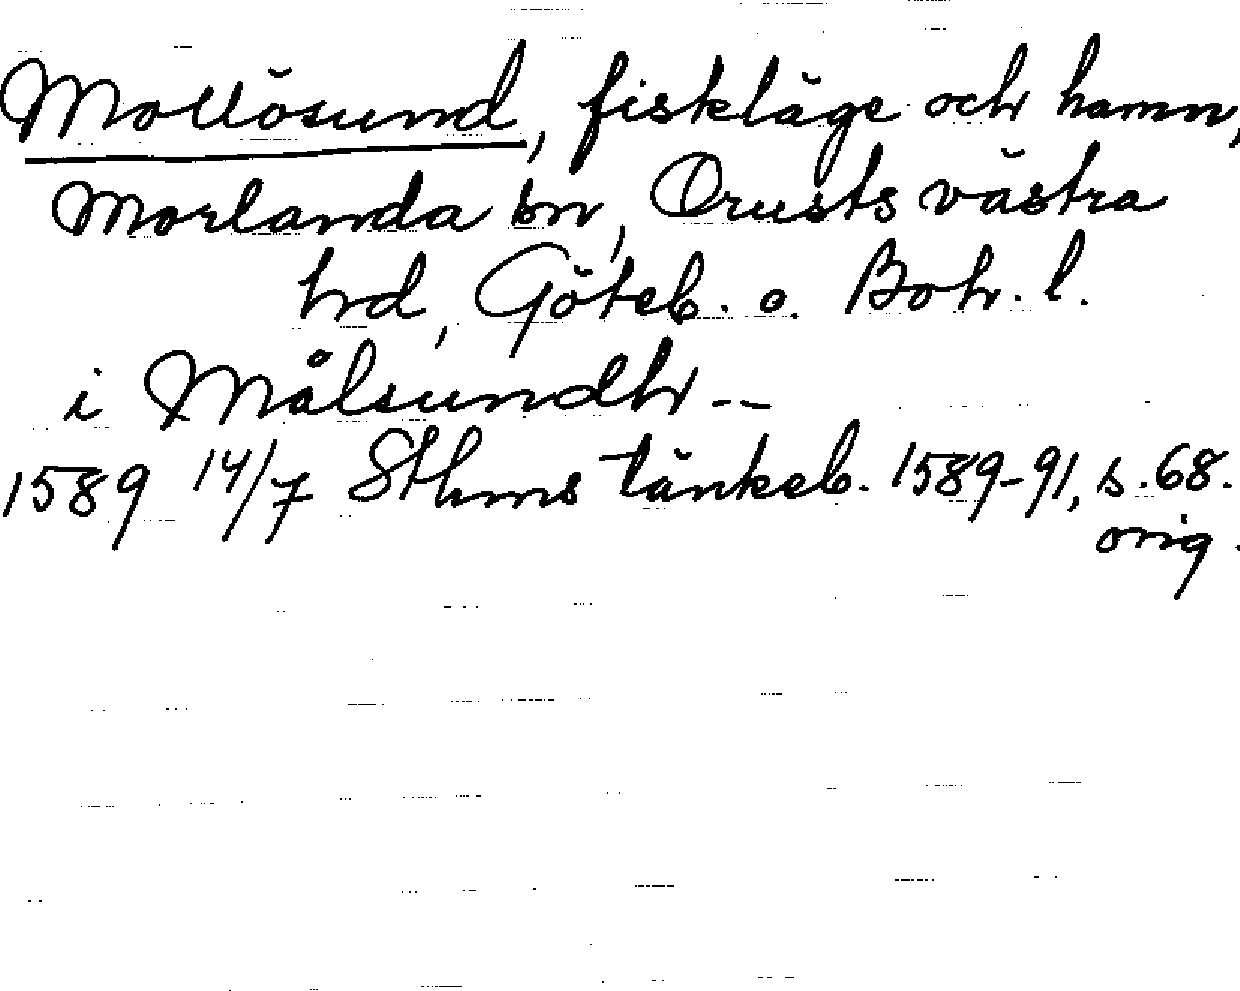 Mollösund, fiskläge och hamn,
Morlanda sn, Orusts västra
hrd, Göteb. o. Boh. l.
i Målsundh --
1589 14/7 Sthms tänkeb. 1589-91, s. 68.
orig.